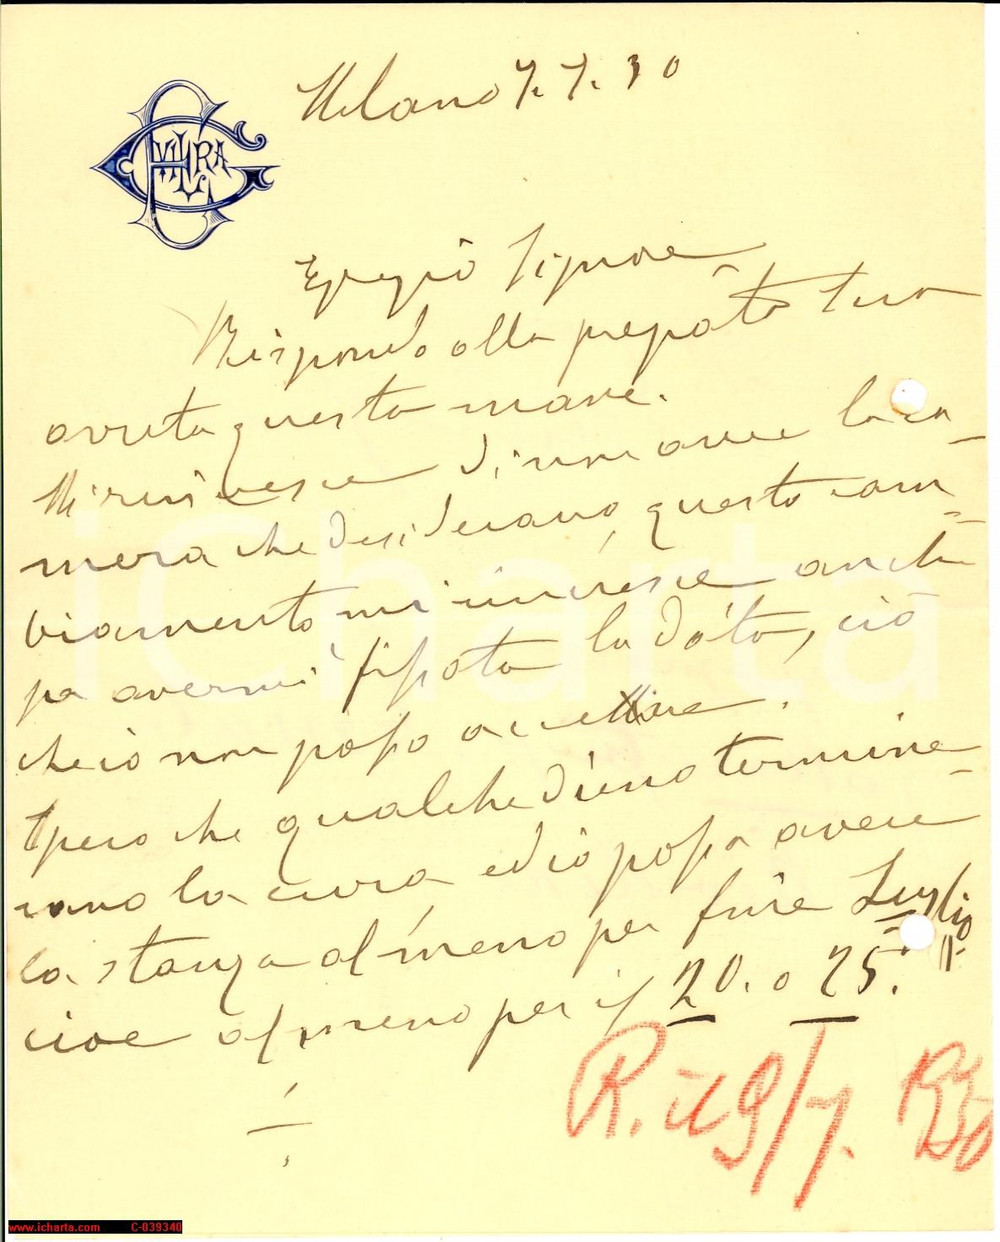 Milano 7. 7. 30
Egregio Signore
Rispondo alla pregiata Sua
avuta questa mane.
Mi rincresce di non avere la ca-
mera che desiderano, questo cam-
biamento mi rincresce anche
per avermi fissata la data, ciò
che io non posso accettare.
Spero che qualcheduno termine-
ranno la cura ed io possa avere
la stanza al meno per fine Luglio
cioe al meno per il 20. o 25.
R. il 9/7. 1930
iCharta
www.icharta.com C-039340